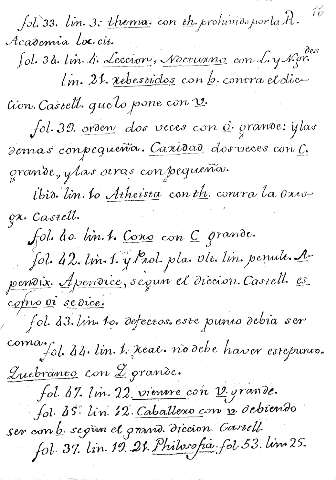 fol. 33. lin. 3: thema. con th. prohivido por la R.
Academia loc. cit.
fol. 34. lin. 4. Leccion, Nocturno con L. y N. grdes
lin. 21. Rebestidos con b. contra el dic-
cion. Castell. que lo pone con v.
fol. 39. orden dos veces con O. grande: y las
demas con pequeña. Caridad dos veces con C.
grande, y las otras con pequeña.
ibid. lin. 10 Atheista con th. contra la Orto-
gr. Castell.
fol. 40. lin. 1. Coro con C grande.
fol. 42. lin. 1. y Prol. pla. vlt. lin. penult. A-
pendix. Apendice, segun el diccion. Castell. es
como vi se dice.
fol. 43. lin. 10. defectos. este punto debia ser
coma.
fol. 44. lin. 1. Real. no debe haver este punto.
Quebranto con Q grande.
fol. 47. lin. 22. vientre con V grande.
fol. 45. lin. 12. Caballero con v debiendo
ser con b. segun el grand. diccion Castell.
fol. 37. lin. 19. 21. Philosofia, fol. 53. lin. 25.